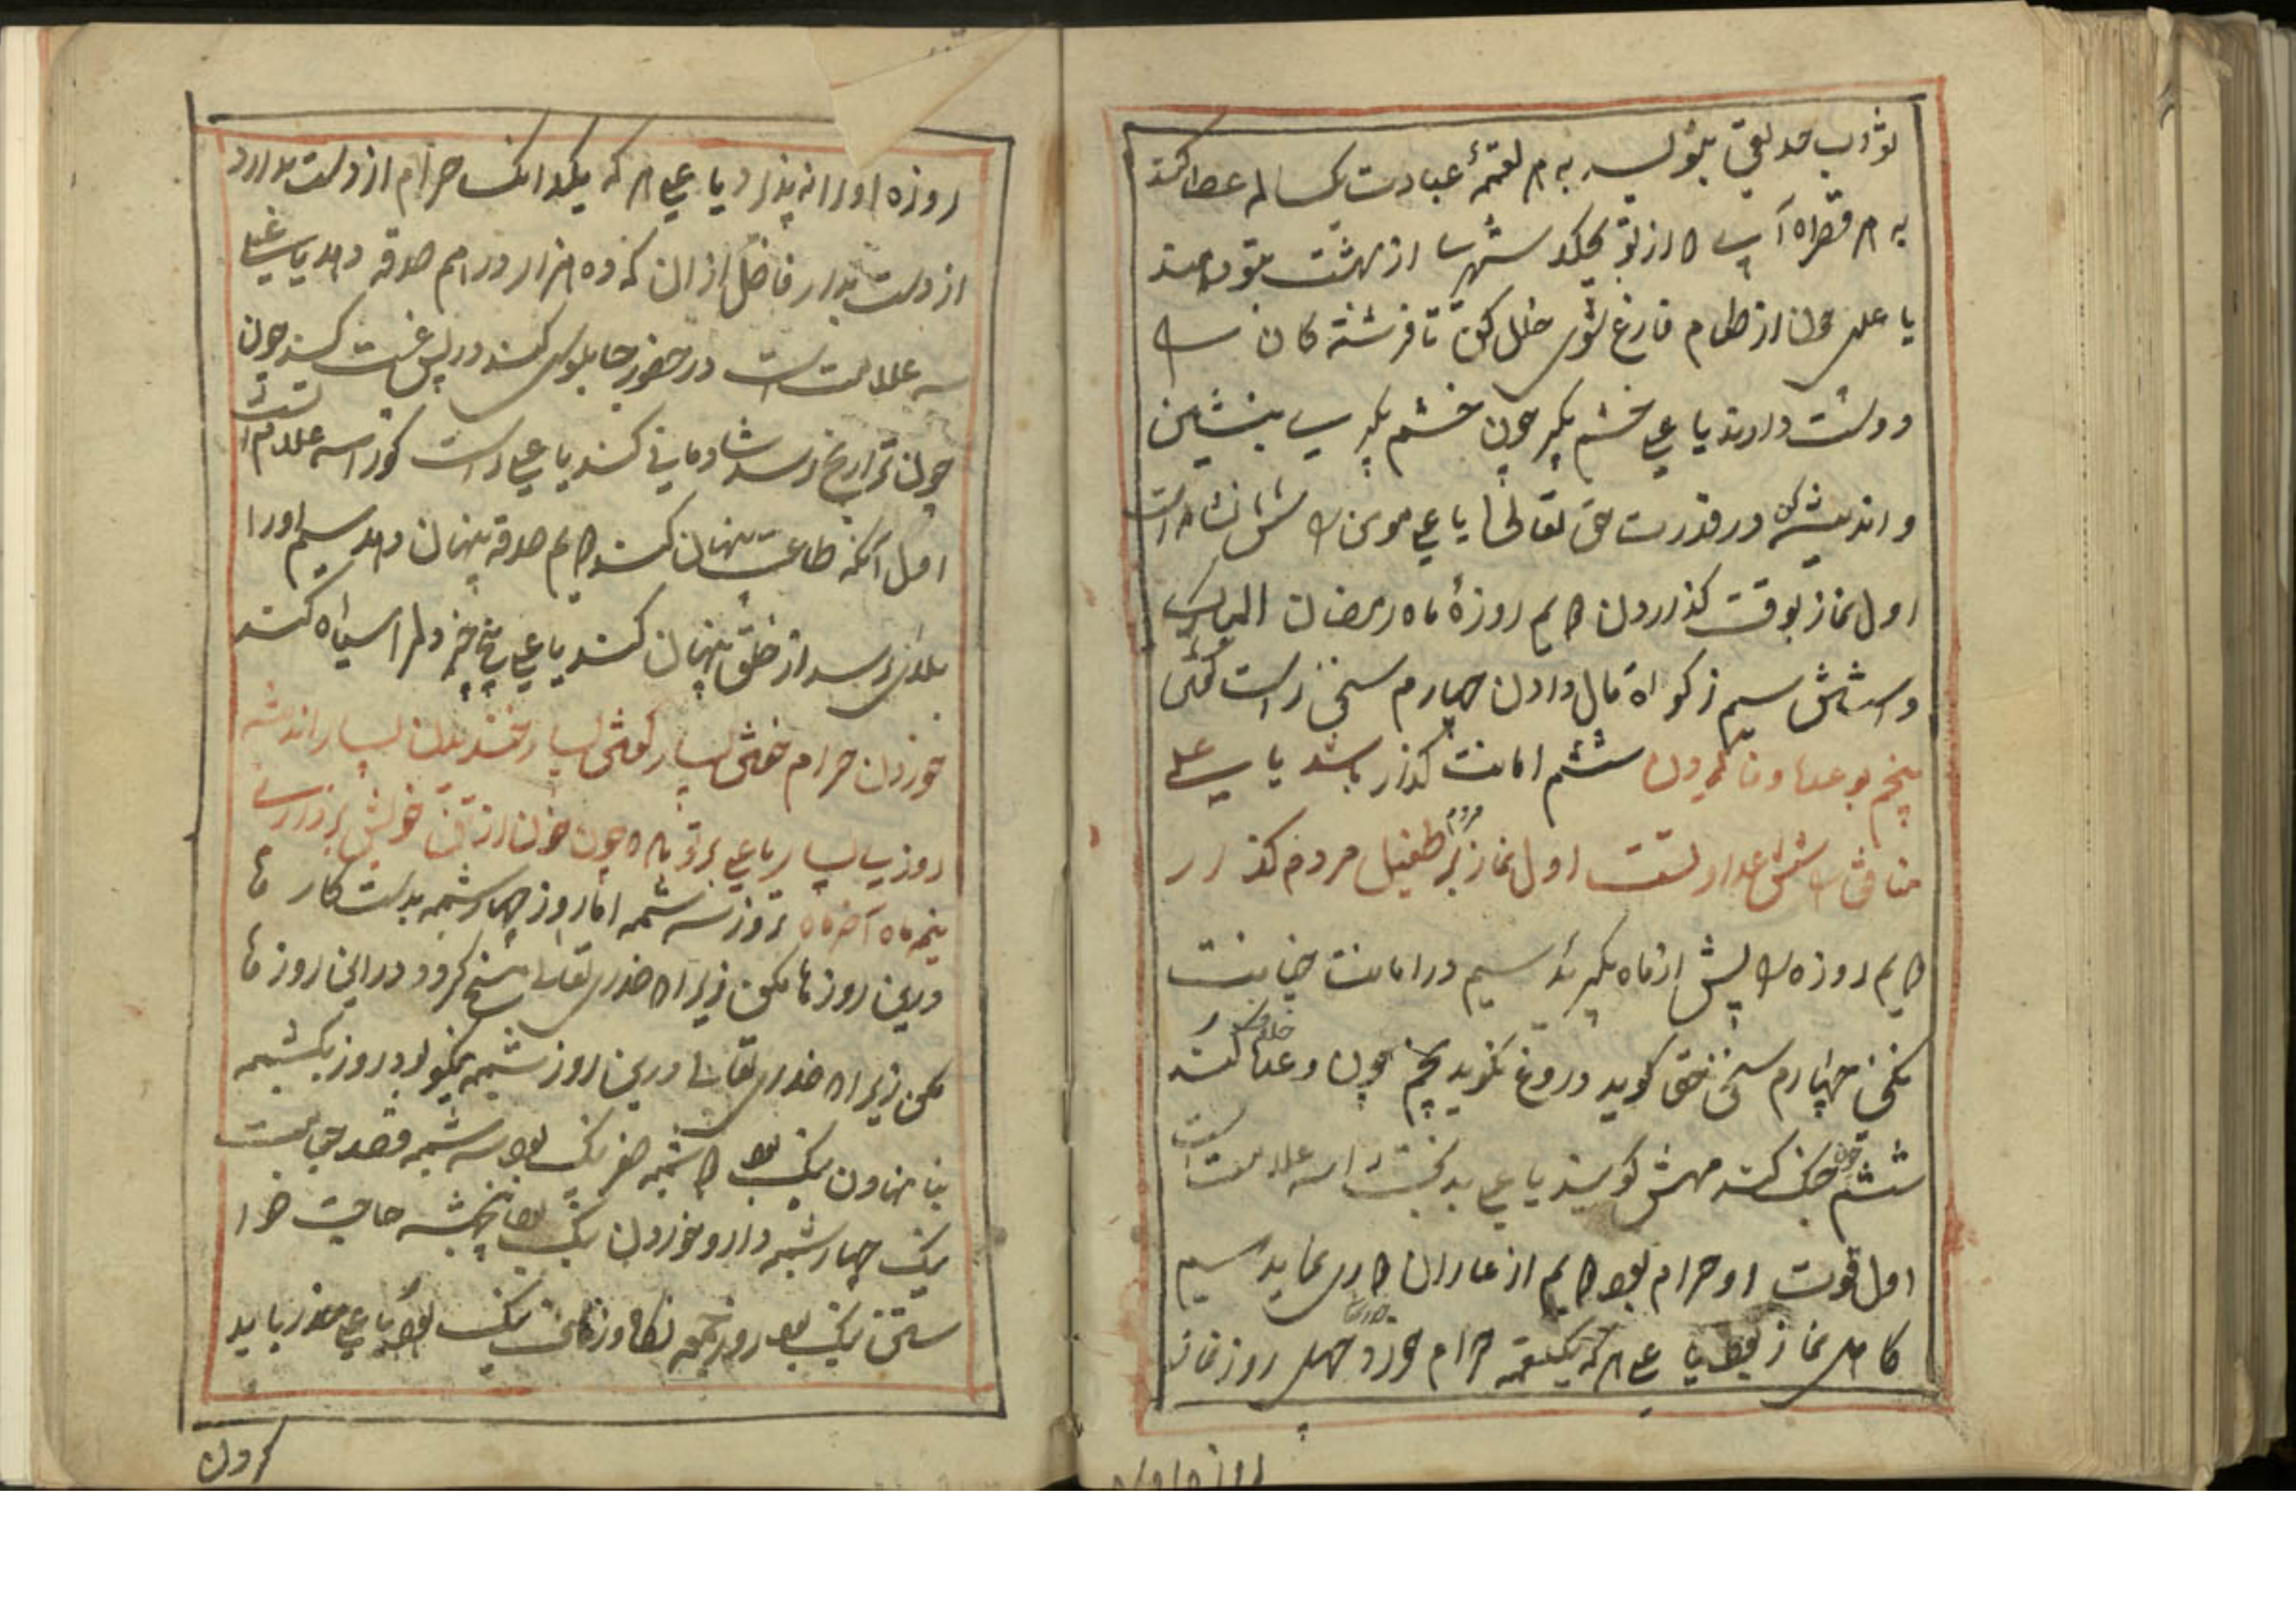 ثواب صدیقی بنویسد بهر لقمهٔ عبادت یکساله عطا کند
بهر قطره آب که از تو بچکد شهر از بهشت بتو دهند
یا علی چون از طعام فارغ شوی خلل کن تا فرشتگان
دوست دارند یا علی خشم مگیر چون خشم بگیری بنشین
و اندیشه کن در قدرت حق تعالی یا علی مومن را شش نشان است
اول نماز بوقت گذاردن دویم روزهٔ ماه رمضان المبارک
داشتن سیم زکواة مال دادن چهارم سخن راست گفتن
پنجم بوعدها وفا کردن ششم امانت گذار باشد یا علی
منافق را شش علامت است اول نماز بر طفیل مردم گذارد
دویم روزه را پیش از ماه بگیرد سیم در امانت خیانت
نکند چهارم سخن حق گوید دروغ نگوید پنجم چون وعده کند خلاف کند
ششم چون جنگ کند فحش گوید یا علی بدبخت را سه علامت است
اول قوت او حرام بود دویم از عالمان دوری نماید سیم
کاهل نماز بود یا علی هر که یکلقمه حرام خورد چهل روز نماز
روزه اورا
روزه اورا نه پذیرد یا علی هر که یکدانک حرام از دست بدارد
از دست بدارد فاضل از آن که ده هزار درهم صدقه دهد یا علی
سه علامت است در حضور چابلوسی کند در پس غیبت کند چون
چون ترا رنج رسد شادمانی کند یا علی راست گو را سه علامت است
اول آنکه طاعت پنهان کند دویم صدقه پنهان دهد سیم اورا
بلائی رسد از خلق پنهان کند یا علی پنج چیز دلرا سیاه کند
خوردن حرام خفتن بسیار گفتن بسیار خندیدن بسیار اندیشه
روزی بسیار یا علی بر تو باد چون خون از تن خویش برداری
نیمه ماه آخر ماه بروز سه شنبه اما روز چهار شنبه بدست کار ها
درین روزها مکن زیرا که خدای تعالی مسخ کرد و در این روز ها
مکن زیرا که خدای تعالی درین روز شنبه نیکو بود روز یکشنبه
بنا نهادن نیک بود دوشنبه سفر نیک بود سه شنبه قصد حجامت
نیک چهارشنبه دارو خوردن نیک بود پنجشنبه حاجت خوا
ستن نیک بود روز جمعه نکاح و زفاف نیک بود یا علی حذر باید
کردن